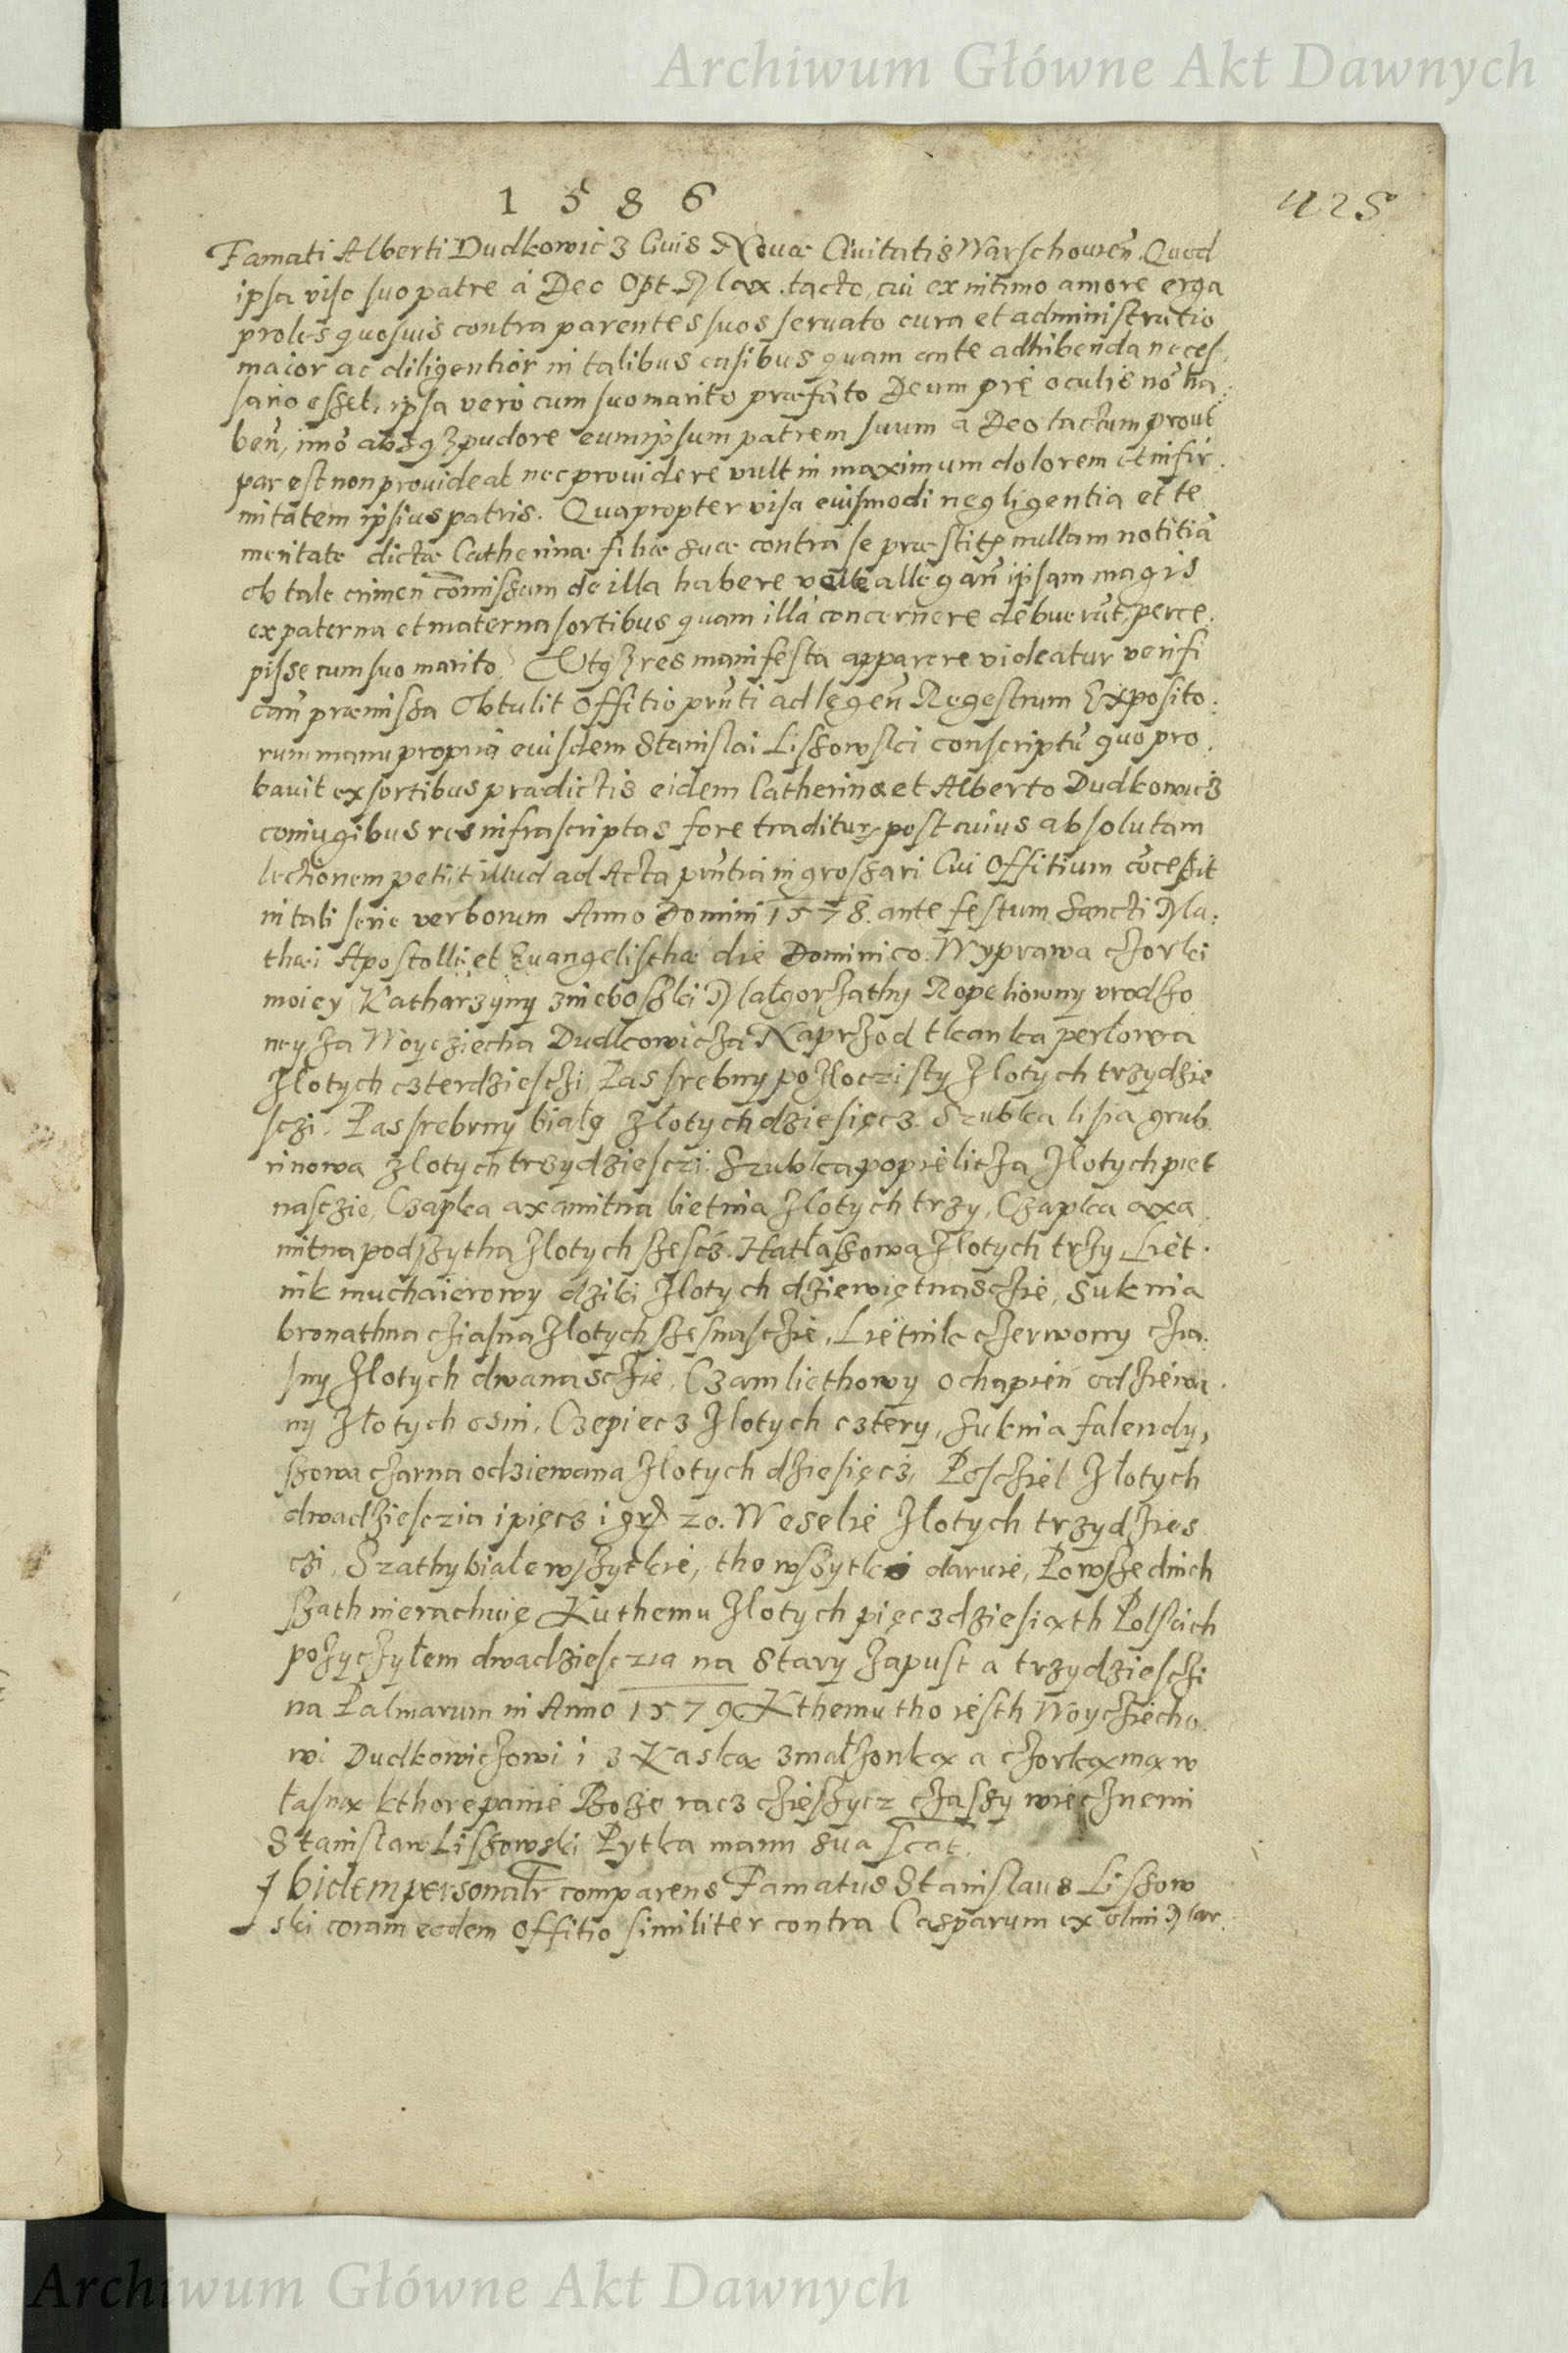 Archiwum Główne Akt Dawnych
1586
425
Famati Alberti Dudkowicz Civis Novæ Civitatis Warschovien̄. Quod
ipsa viso suo patre à Deo Opt. Max. tacto, cui ex intimo amore erga
proles quosvis contra parentes suos servato cura et administratio
maior ac diligentior in talibus casibus quam ante adhibenda neces,
sario esset, ipsa vero cum suo marito præfato Deum præ oculis nō ha:
ben̄, imò absq3 pudore eumipsum patrem suum a Deo tactum prout
par est non provideat nec providere vult in maximum dolorem et infir.
mitatem ipsius patris. Quapropter visa euismodi negligentia et te
meritate dictæ Catherinæ filiæ suæ contra se præstitę nullam notitiā
ob tale crimen com̄issum de illa habere velle allegan̄ ipsam magis
ex paterna et materna sortibus quam illā concernere debuerūt, perce.
pisse cum suo marito. Utq3 res manifesta apparere videatur verifi
can̄ præmissa Obtulit Offitio prn̄ti ad legen̄ Regestrum Exposito:
rum manu propria eiusdem Stanislai Lissowski conscriptū quo pro.
bavit ex sortibus prædictis eidem Catherinæ et Alberto Dudkowicz
coniugibus res infrascriptas fore traditur, post cuius absolutam
lectionem petiit illud ad Acta prn̄tia ingrossari Cui Offitium cōcessit
in tali serie verborum Anno Domini 1578. ante festum Sancti Ma:
thæi Apostoli et Evangelisthæ die Dominico. Wyprawa czorki
moiey Katharzyny z nieboszki Małgorzathy Ropeliowny vrodzo
ney za Woyciecha Dudkowicza Naprzod tkanka perłowa
Złotych czterdziesczi, Pas srebny pozłoczisty Złotych trzydzie
sczi. Pas srebrny biały złotych dziesięcz. Szubka lisia grub.
rinowa złotych trzydziesczi. Szubka popielicza Złotych piet
nasczie, Czapka axamitna lietnia Złotych trzy, Czapka axa
mitna podszytha Złotych szescz. Hatlaszowa Złotych trzy Liet.
nik muchaierowy dziki Złotych dziewiętnasczie, Suknia
bronathna cziasna Złotych szesnasczie, Lietnik czerwony czia.
sny Złotych dwanasczie, Czamliethowy ochapień odziewa.
ny Złotych osm, Czepiecz Złotych cztery, Suknia falendy,
szowa czarna odziewana Złotych dziesięcz, Posciel Złotych
dwadziesczia i pięcz i gr 20. Weselie Złotych trzydzies
czi, Szathy białe wszytkie, tho wszytko daruie, Powszednich
szath nierachuię Ku themu Złotych pięczdziesiąth Polskich
pożyczyłem dwadziesczia na Stary Zapust a trzydziesczi
na Palmarum in Anno 1579. K themu tho iesth Woyciecho.
wi Dudkowiczowi i z Kaską z małzonką a czorką mą w
łasną kthore panie Boże racz czieszycz czassy wiecznemi
Stanislaw Lissowski Pytka manu sua scat.
Ibidem personalr comparens Famatus Stanislaus Lissow
ski coram eodem Offitio similiter contra Casparum ex olim Mar.
Archiwum Główne Akt Dawnych